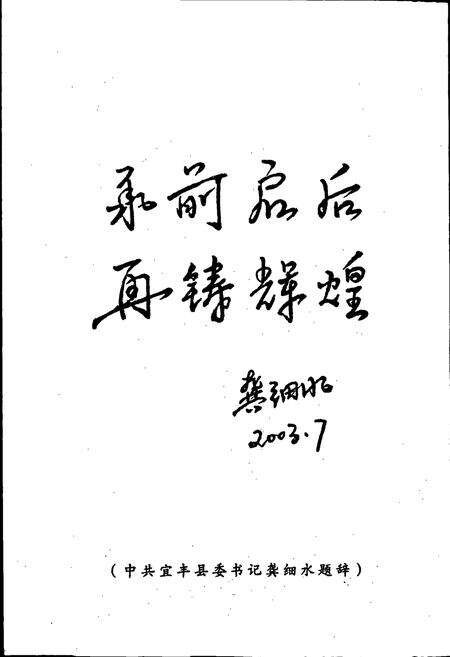 承前启后
再铸辉煌
龚细水
2003.7
（中共宜丰县委书记龚细水题辞）